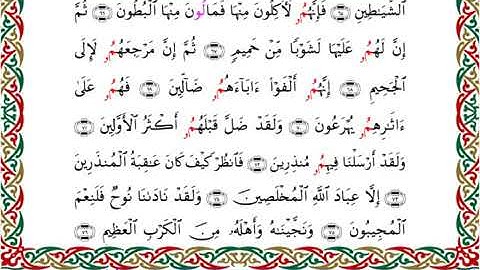 ٱلشَّيَٰطِينِ ٦٥ فَإِنَّهُمُۥ لَأٓكِلُونَ مِنْهَا فَمَالُونَ مِنْهَا ٱلْبُطُونَ ٦٦ ثُمَّ
إِنَّ لَهُمُۥ عَلَيْهَا لَشَوْبًا مِّنْ حَمِيمٍ ٦٧ ثُمَّ إِنَّ مَرْجِعَهُمُۥ لَإِلَى
ٱلْجَحِيمِ ٦٨ إِنَّهُمُۥ أَلْفَوْا۟ ءَابَآءَهُمُۥ ضَآلِّينَ ٦٩ فَهُمُۥ عَلَىٰٓ
ءَاثَٰرِهِمُۥ يُهْرَعُونَ ٧٠ وَلَقَدْ ضَلَّ قَبْلَهُمُۥٓ أَكْثَرُ ٱلْأَوَّلِينَ ٧١
وَلَقَدْ أَرْسَلْنَا فِيهِمُۥ مُنذِرِينَ ٧٢ فَٱنظُرْ كَيْفَ كَانَ عَٰقِبَةُ ٱلْمُنذَرِينَ
٧٣ إِلَّا عِبَادَ ٱللَّهِ ٱلْمُخْلَصِينَ ٧٤ وَلَقَدْ نَادَىٰنَا نُوحٌ فَلَنِعْمَ
ٱلْمُجِيبُونَ ٧٥ وَنَجَّيْنَٰهُ وَأَهْلَهُۥ مِنَ ٱلْكَرْبِ ٱلْعَظِيمِ ٧٦